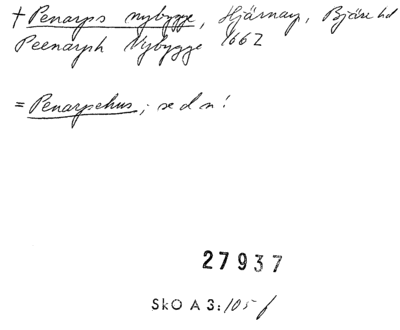 † Penarps nybygge, Hjärnarp, Bjäre hd
Peenarph Nybygge 1662
= Penarpehus; se d n!
27937
SkO A 3: 105 f